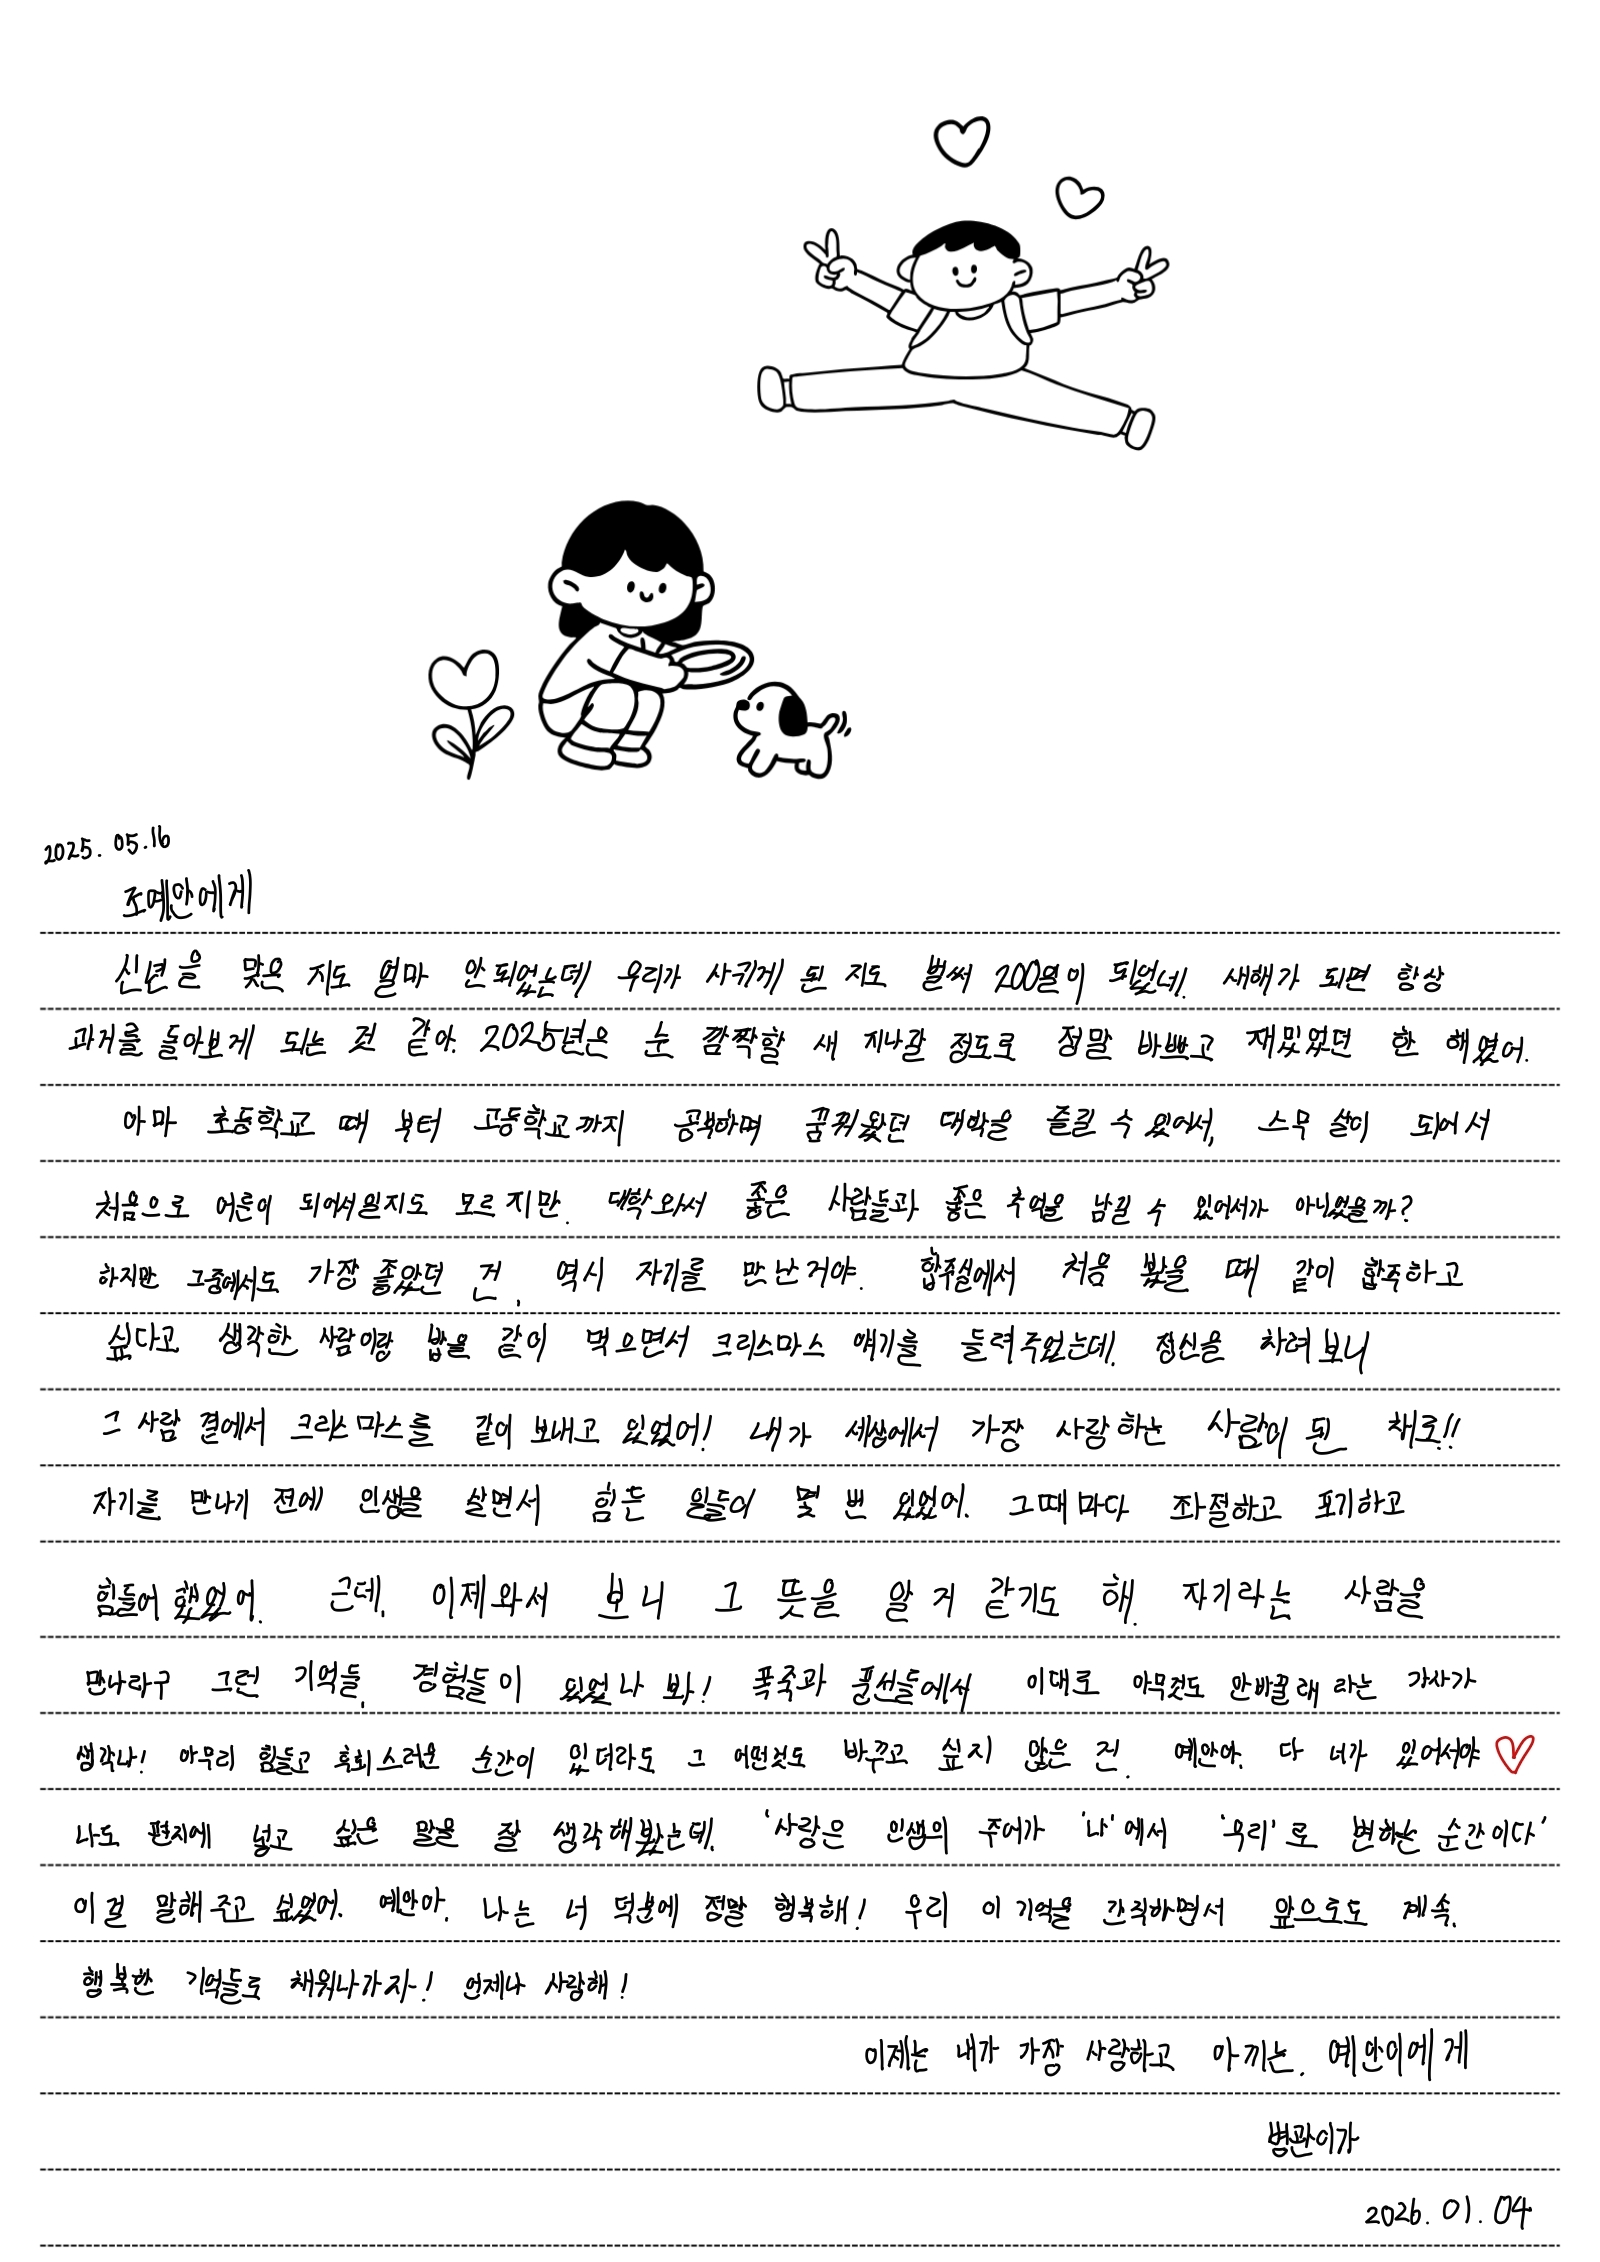 2025. 05.16
조예안에게
신년을 맞은 지도 얼마 안 되었는데 우리가 사귀게 된 지도 벌써 200일이 되었네. 새해가 되면 항상
과거를 돌아보게 되는 것 같아. 2025년은 눈 깜짝할 새 지나갈 정도로 정말 바쁘고 재밌었던 한 해였어.
아마 초등학교 때 부터 고등학교까지 공부하며 꿈꿔왔던 대학을 즐길 수 있어서, 스무 살이 되어서
처음으로 어른이 되어서일지도 모르지만. 대학 와서 좋은 사람들과 좋은 추억을 남길 수 있어서가 아니었을까?
하지만 그중에서도 가장 좋았던 건, 역시 자기를 만난거야. 합주실에서 처음 봤을 때 같이 합주하고
싶다고 생각한 사람이랑 밥을 같이 먹으면서 크리스마스 얘기를 들려주었는데. 정신을 차려보니
그 사람 곁에서 크리스마스를 같이 보내고 있었어! 내가 세상에서 가장 사랑하는 사람이 된 채로!!
자기를 만나기 전에 인생을 살면서 힘든 일들이 몇 번 있었어. 그때마다 좌절하고 포기하고
힘들어 했었어. 근데, 이제와서 보니 그 뜻을 알 거 같기도 해. 자기라는 사람을
만나라구 그런 기억들, 경험들이 있었나 봐! 폭죽과 풍선들에서 이대로 아무것도 안바꿀래 라는 가사가
생각나! 아무리 힘들고 후회스러운 순간이 있더라도 그 어떤것도 바꾸고 싶지 않은 건. 예안아. 다 너가 있어서야
나도 편지에 넣고 싶은 말을 잘 생각해봤는데. '사랑은 인생의 주어가 '나'에서 '우리'로 변하는 순간이다'
이걸 말해주고 싶었어. 예안아. 나는 너 덕분에 정말 행복해! 우리 이 기억을 간직하면서 앞으로도 계속.
행복한 기억들로 채워나가자! 언제나 사랑해!
이제는 내가 가장 사랑하고 아끼는. 예안이에게
병관이가
2026. 01. 04